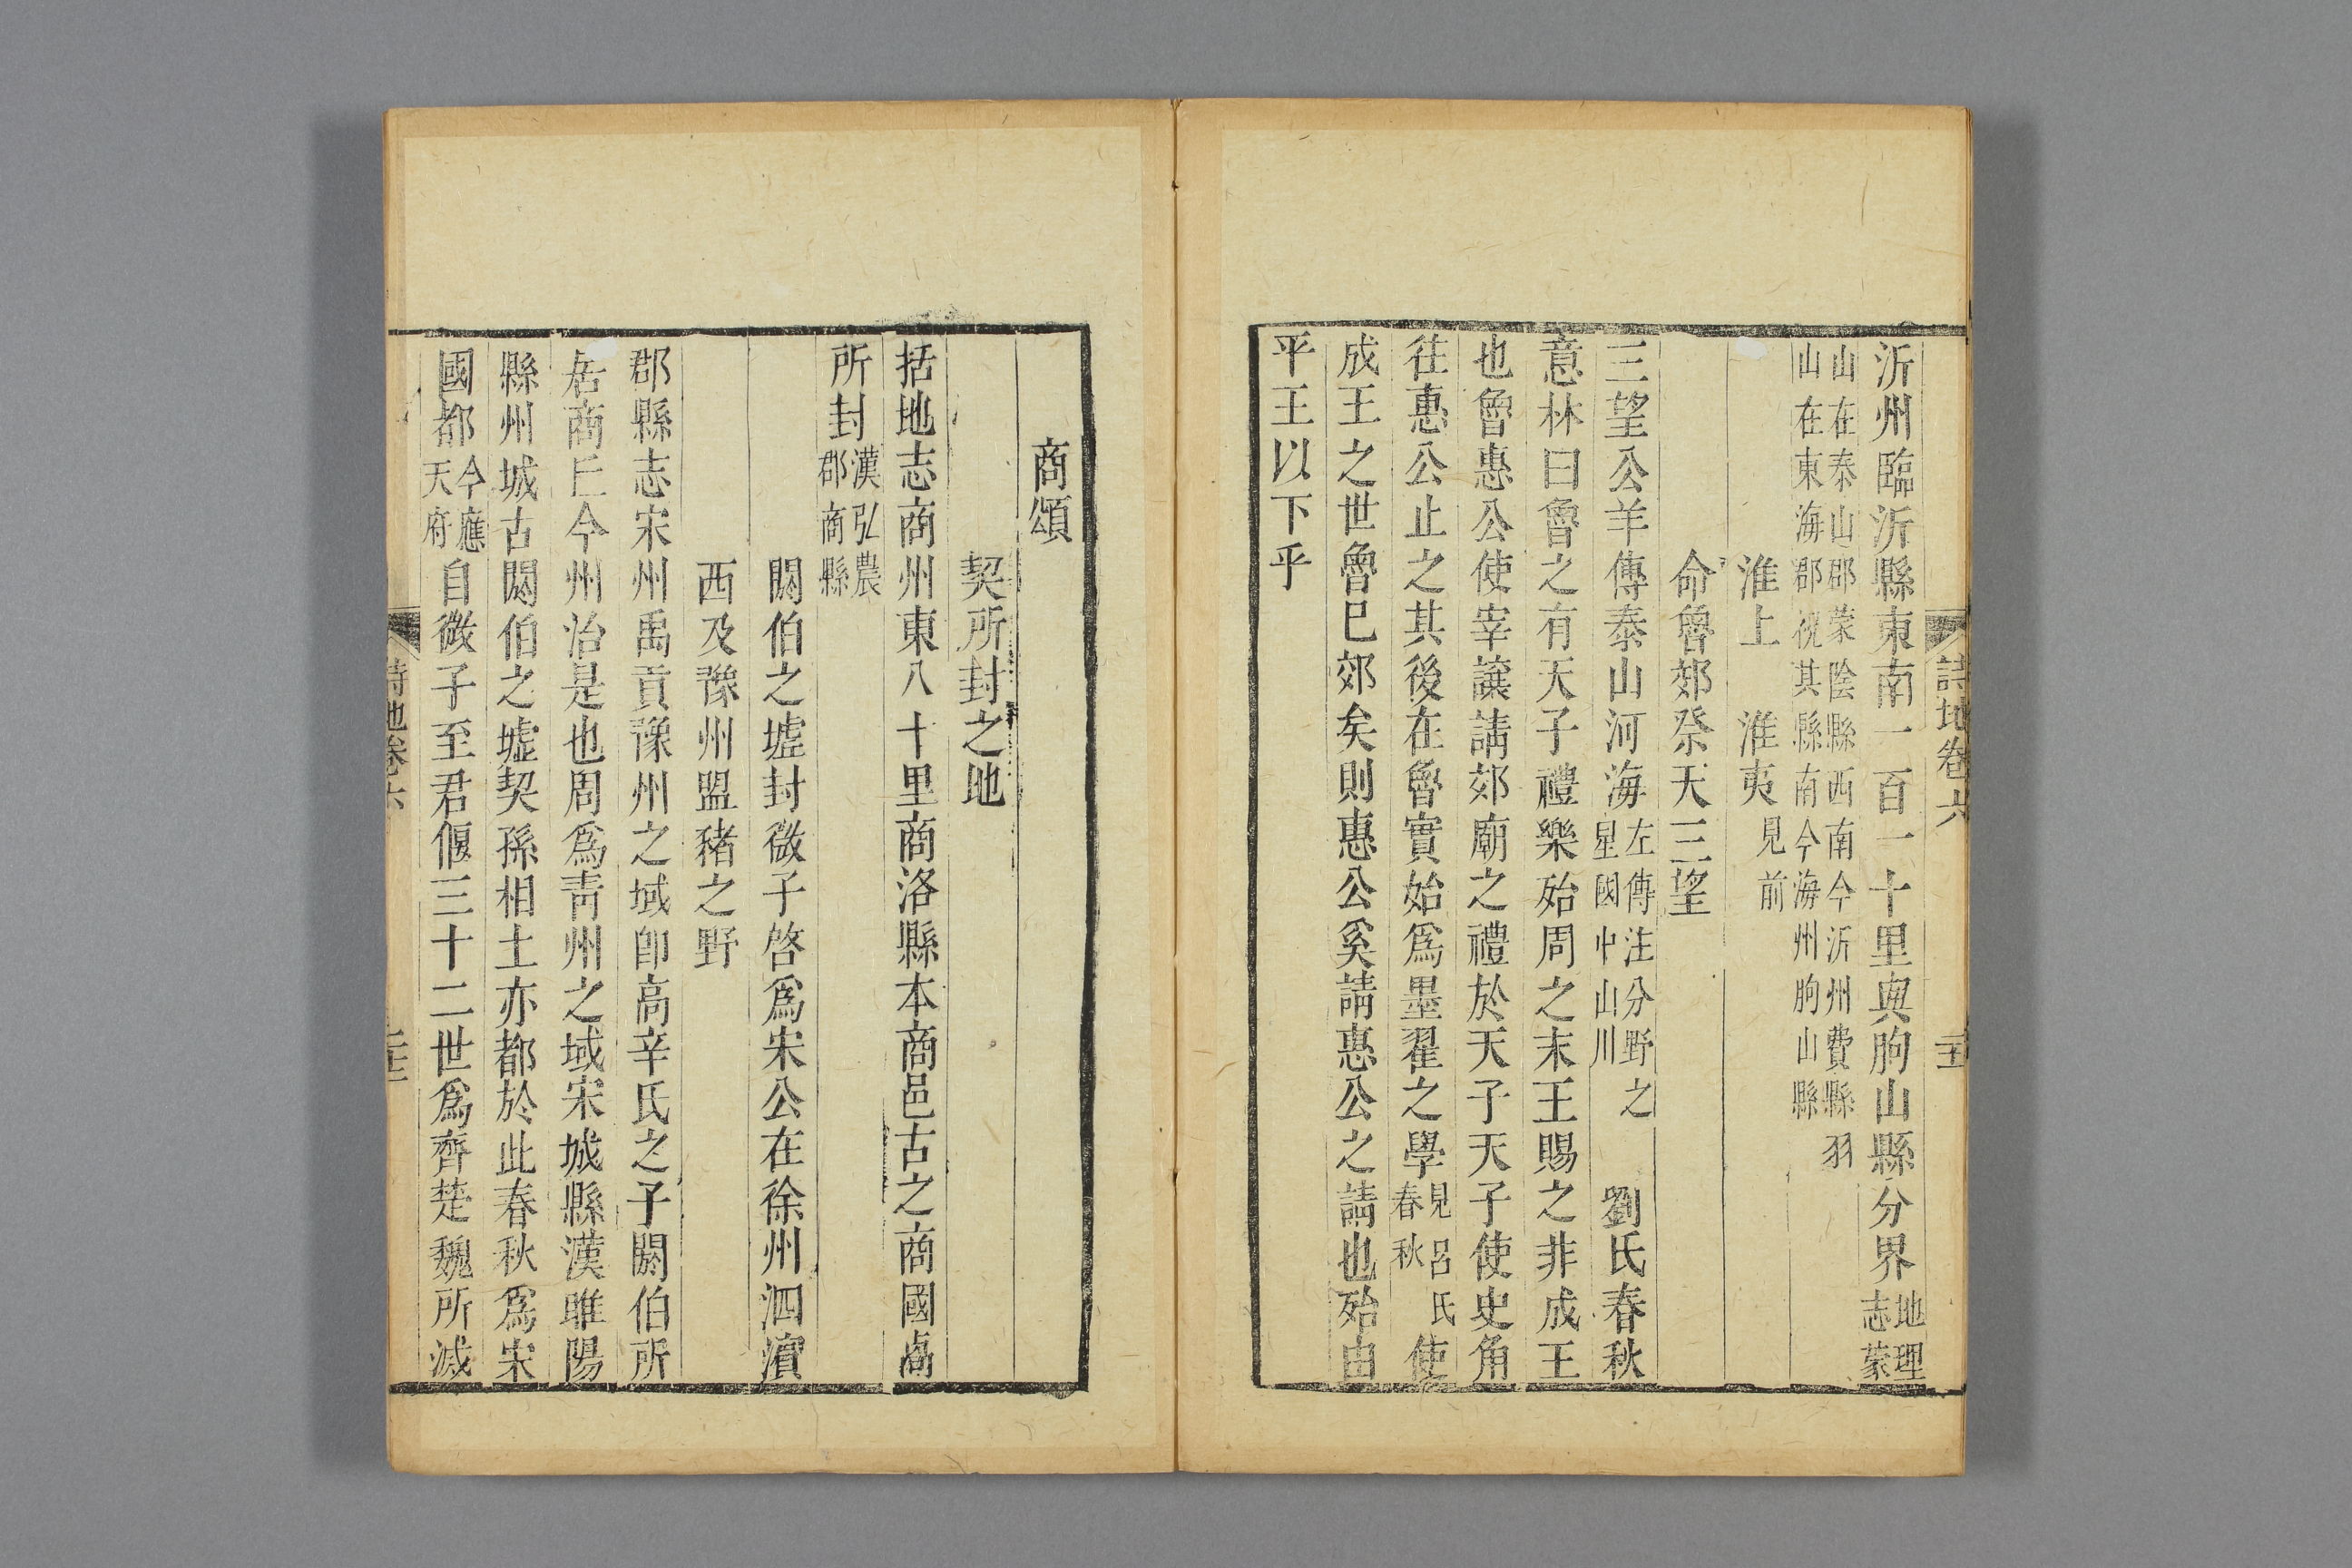 詩地卷六
沂州臨沂縣東南一百一十里與朐山縣分界地理志蒙
山在泰山郡蒙陰縣西南今沂州費縣羽
山在東海郡祝其縣南今海州朐山縣
淮上 淮夷見前
命魯郊祭天三望
三望公羊傳泰山河海左傳注分野之星國中山川 劉氏春秋
意林曰魯之有天子禮樂殆周之末王賜之非成王
也魯惠公使宰讓請郊廟之禮於天子天子使史角
徃惠公止之其後在魯實始爲墨翟之學見呂氏春秋使
成王之世魯巳郊矣則惠公奚請惠公之請也殆由
平王以下乎
商頌
契所封之地
括地志商州東八十里商洛縣本商邑古之商國卨
所封漢弘農郡商縣
閼伯之墟封微子啓爲宋公在徐州泗濵
西及豫州盟豬之野
郡縣志宋州禹貢豫州之域卽高辛氏之子閼伯所
居商丘今州治是也周爲靑州之域宋城縣漢睢陽
縣州城古閼伯之墟契孫相土亦都於此春秋爲宋
國都今應天府自微子至君偃三十二世爲齊楚魏所滅
詩地卷六